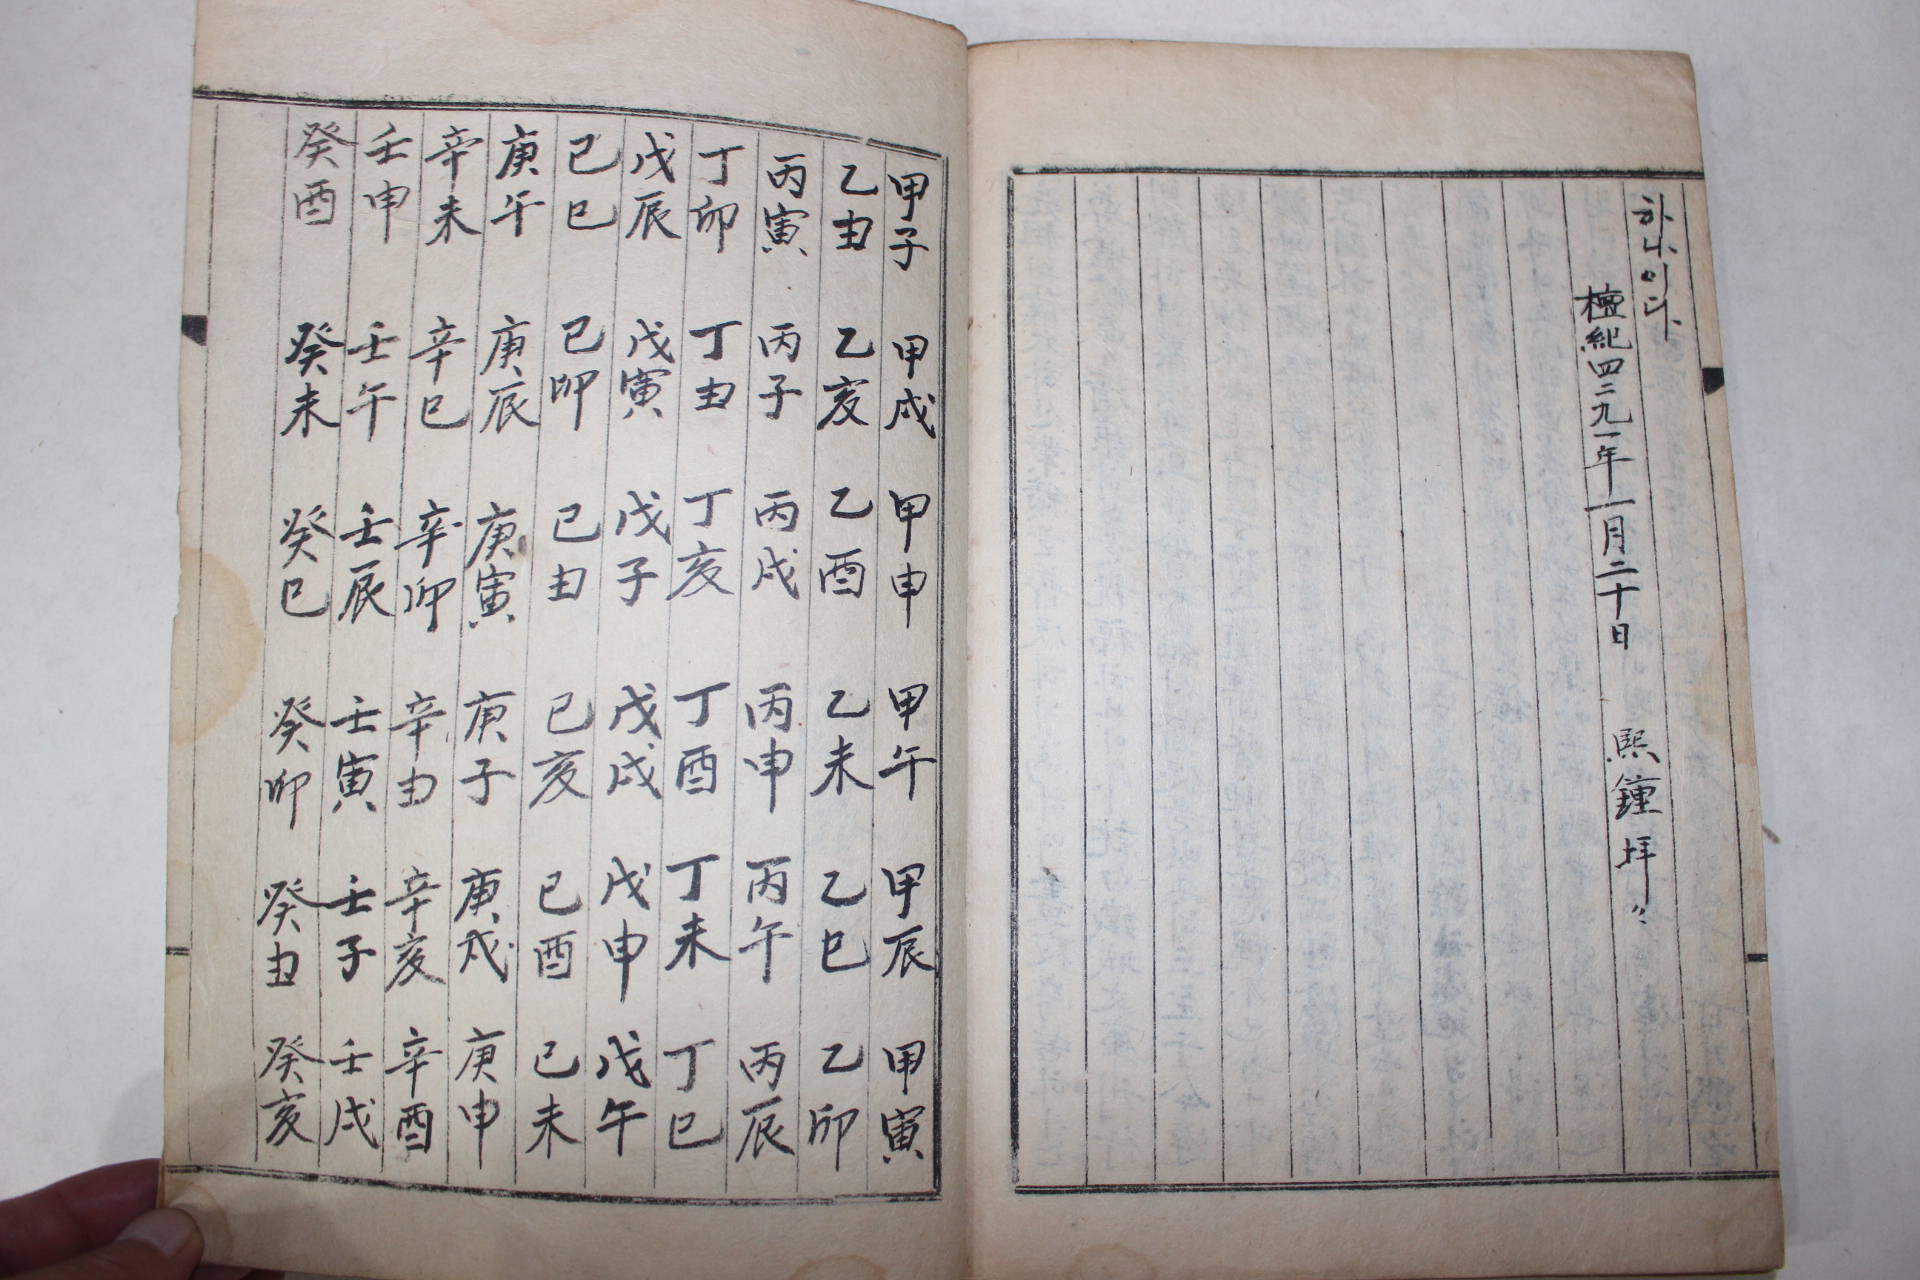 하나이다
檀紀四二九一年二月二十日 熙鍾拜〃
甲子 甲戌 甲申 甲午 甲辰 甲寅
乙丑 乙亥 乙酉 乙未 乙巳 乙卯
丙寅 丙子 丙戌 丙申 丙午 丙辰
丁卯 丁丑 丁亥 丁酉 丁未 丁巳
戊辰 戊寅 戊子 戊戌 戊申 戊午
己巳 己卯 己丑 己亥 己酉 己未
庚午 庚辰 庚寅 庚子 庚戌 庚申
辛未 辛巳 辛卯 辛丑 辛亥 辛酉
壬申 壬午 壬辰 壬寅 壬子 壬戌
癸酉 癸未 癸巳 癸卯 癸丑 癸亥